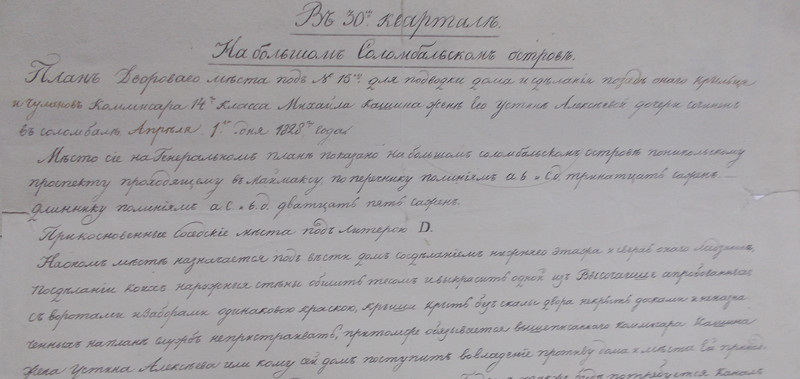 Въ 30мъ кварталѣ.
На большомъ Соломбальскомъ островѣ.
Планъ Двороваго мѣста подъ № 15мъ для подводки дома и сдѣланія позадь онаго крыльца
и чулановъ Коммисара 14го класса Михайла Кашина женѣ Его Устинѣ Алексѣевой дочери сочиненъ
въ соломбалѣ Апрѣля 1го дня 1828го года
Мѣсто сіе на Генеральномъ планѣ показано на большомъ соломбальскомъ островѣ поникольскому
проспекту проходящему въ Маймаксу, по перечнику полиніямъ a b и c d тринатцать сажен
длиннику полиніямъ a c и b. d. дватцать пять сажен.
Прикосновенные Сосѣдскіе мѣста подъ литерою D.
На ономъ мѣстѣ назначается подъ вѣсти домъ создѣланіемъ нижнего этажа и сверхъ онаго Мезонина,
Поздѣланіи коихъ наружныя стѣны обшить тесомъ и выкрасить одной изъ Высочайше апробованныхъ
съ воротами и Заборами одинаковою краскою, крыши крыть безъ скалы двора некрыть доками и
ченныхъ на планѣ службъ непристраивать, притомже обязывается вышеписаннаго комисара Кашина
жена Устинья Алексѣева или кому сей домъ поступитъ вовладение противу дома и мѣста Ей
потребуется каналъ